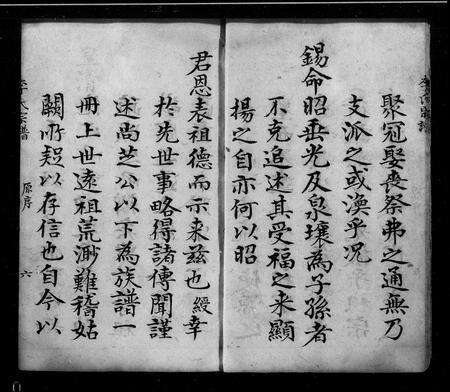 聚冠娶喪祭弗之通無乃
支派之或渙乎況
錫命昭垂光及泉壤為子孫者
不克追述其受福之来顯
揚之自亦何以昭
君恩表祖德而示来茲也緩幸
於先世事略得諸傳聞謹
述尚芝公以下為族譜一
冊上世遠祖荒渺難稽姑
闕所疑以存信也自今以
李氏宗譜
原序
六